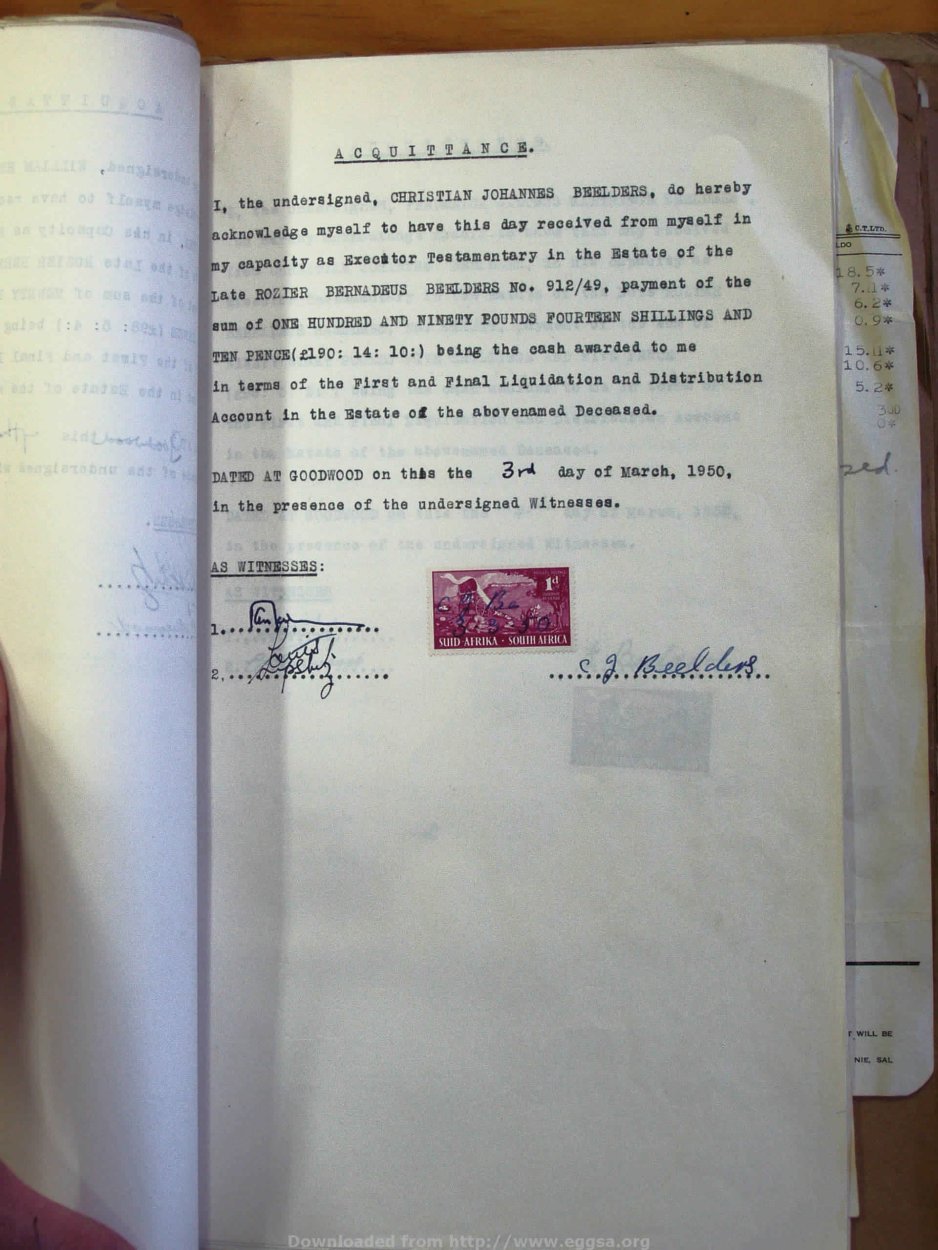 A C Q U I T T A N C E.
I, the undersigned, CHRISTIAN JOHANNES BEELDERS, do hereby
acknowledge myself to have this day received from myself in
my capacity as Executor Testamentary in the Estate of the
Late ROZIER BERNADEUS BEELDERS No. 912/49, payment of the
sum of ONE HUNDRED AND NINETY POUNDS FOURTEEN SHILLINGS AND
TEN PENCE(£190: 14: 10:) being the cash awarded to me
in terms of the First and Final Liquidation and Distribution
Account in the Estate of the abovenamed Deceased.
DATED AT GOODWOOD on this the 3rd day of March, 1950,
in the presence of the undersigned Witnesses.
AS WITNESSES:
1d
C J Be
3-3-50
SUID-AFRIKA · SOUTH AFRICA
1.
2.
C J Beelders.
& C.T. LTD.
LDO
18.5*
7.11*
6.2*
0.9*
15.11*
10.6*
5.2*
0*
T WILL BE
NIE, SAL
Downloaded from http://www.eggsa.org